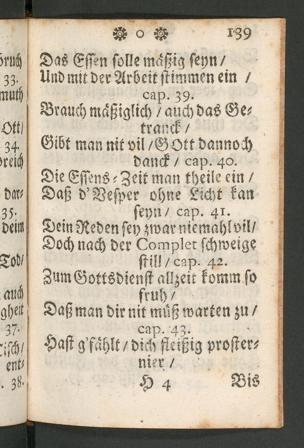 ❋ o ❋ 139
Das Essen solle mäßig seyn /
Und mit der Arbeit stimmen ein /
cap. 39.
Brauch mäßiglich / auch das Ge-
tranck /
Gibt man nit vil / GOtt dannoch
danck / cap. 40.
Die Essens-Zeit man theile ein /
Daß d'Vesper ohne Licht kan
seyn / cap. 41.
Dein Reden sey zwar niemahl vil /
Doch nach der Complet schweige
still / cap. 42.
Zum Gottsdienst allzeit komm so
fruh /
Daß man dir nit müß warten zu /
cap. 43.
Hast g'fählt / dich fleißig proster-
nier /
H 4 Bis
33.
muth
Ott /
34.
dar-
35.
Tod /
auch
37.
ent-
38.